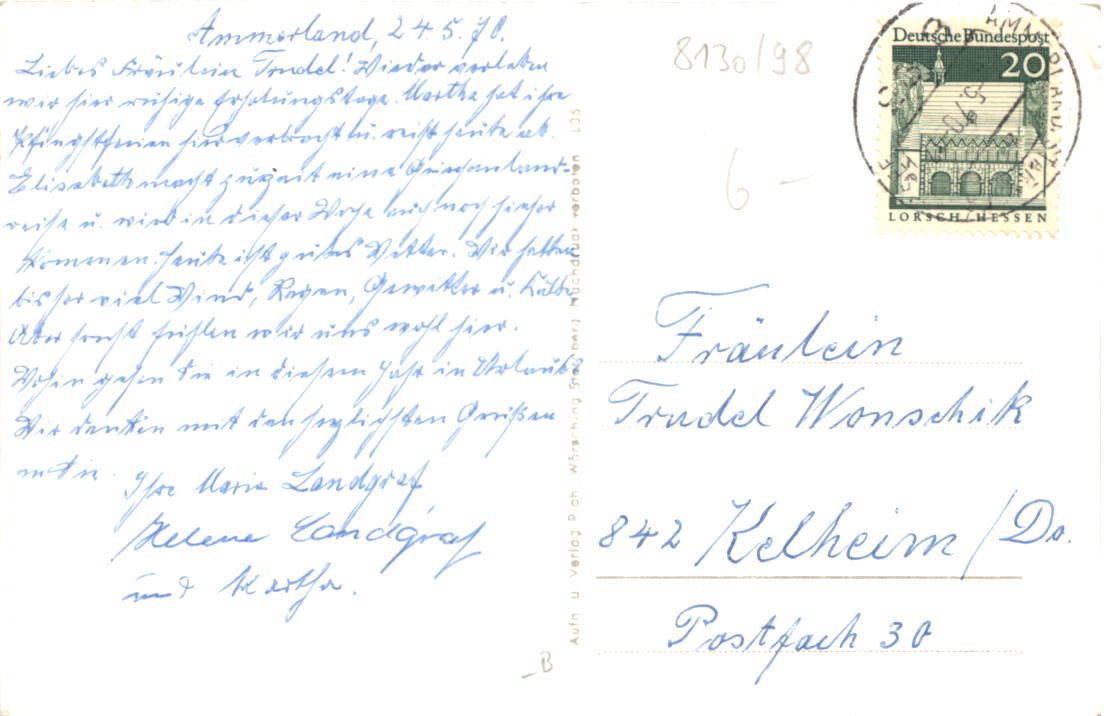 Ammerland, 24.5.70.
Liebes Fräulein Trudel! Wieder verleben
wir hier ruhige Erholungstage. Martha hat ihre
Pfingstferien hier verbracht u. reist heute ab.
Elisabeth macht zurzeit eine Griechenland-
reise u. wird in dieser Woche auch noch hieher
kommen. Heute ist gutes Wetter. Wir hatten
bisher viel Wind, Regen, Gewitter u. Kälte.
Aber sonst fühlen wir uns wohl hier.
Wohin gehen Sie in diesem Jahr in Urlaub?
Wir denken mit den herzlichsten Grüßen
an Sie.
Ihre Marie Landgraf
Helene Landgraf
und Martha.
Aufn. u. Verlag Rich. Wörsching Starnberg Nachdruck verboten
8130/98
6 -
B
Deutsche Bundespost
20
LORSCH/HESSEN
Fräulein
Trudel Wonschik
842 Kelheim/Do.
Postfach 30